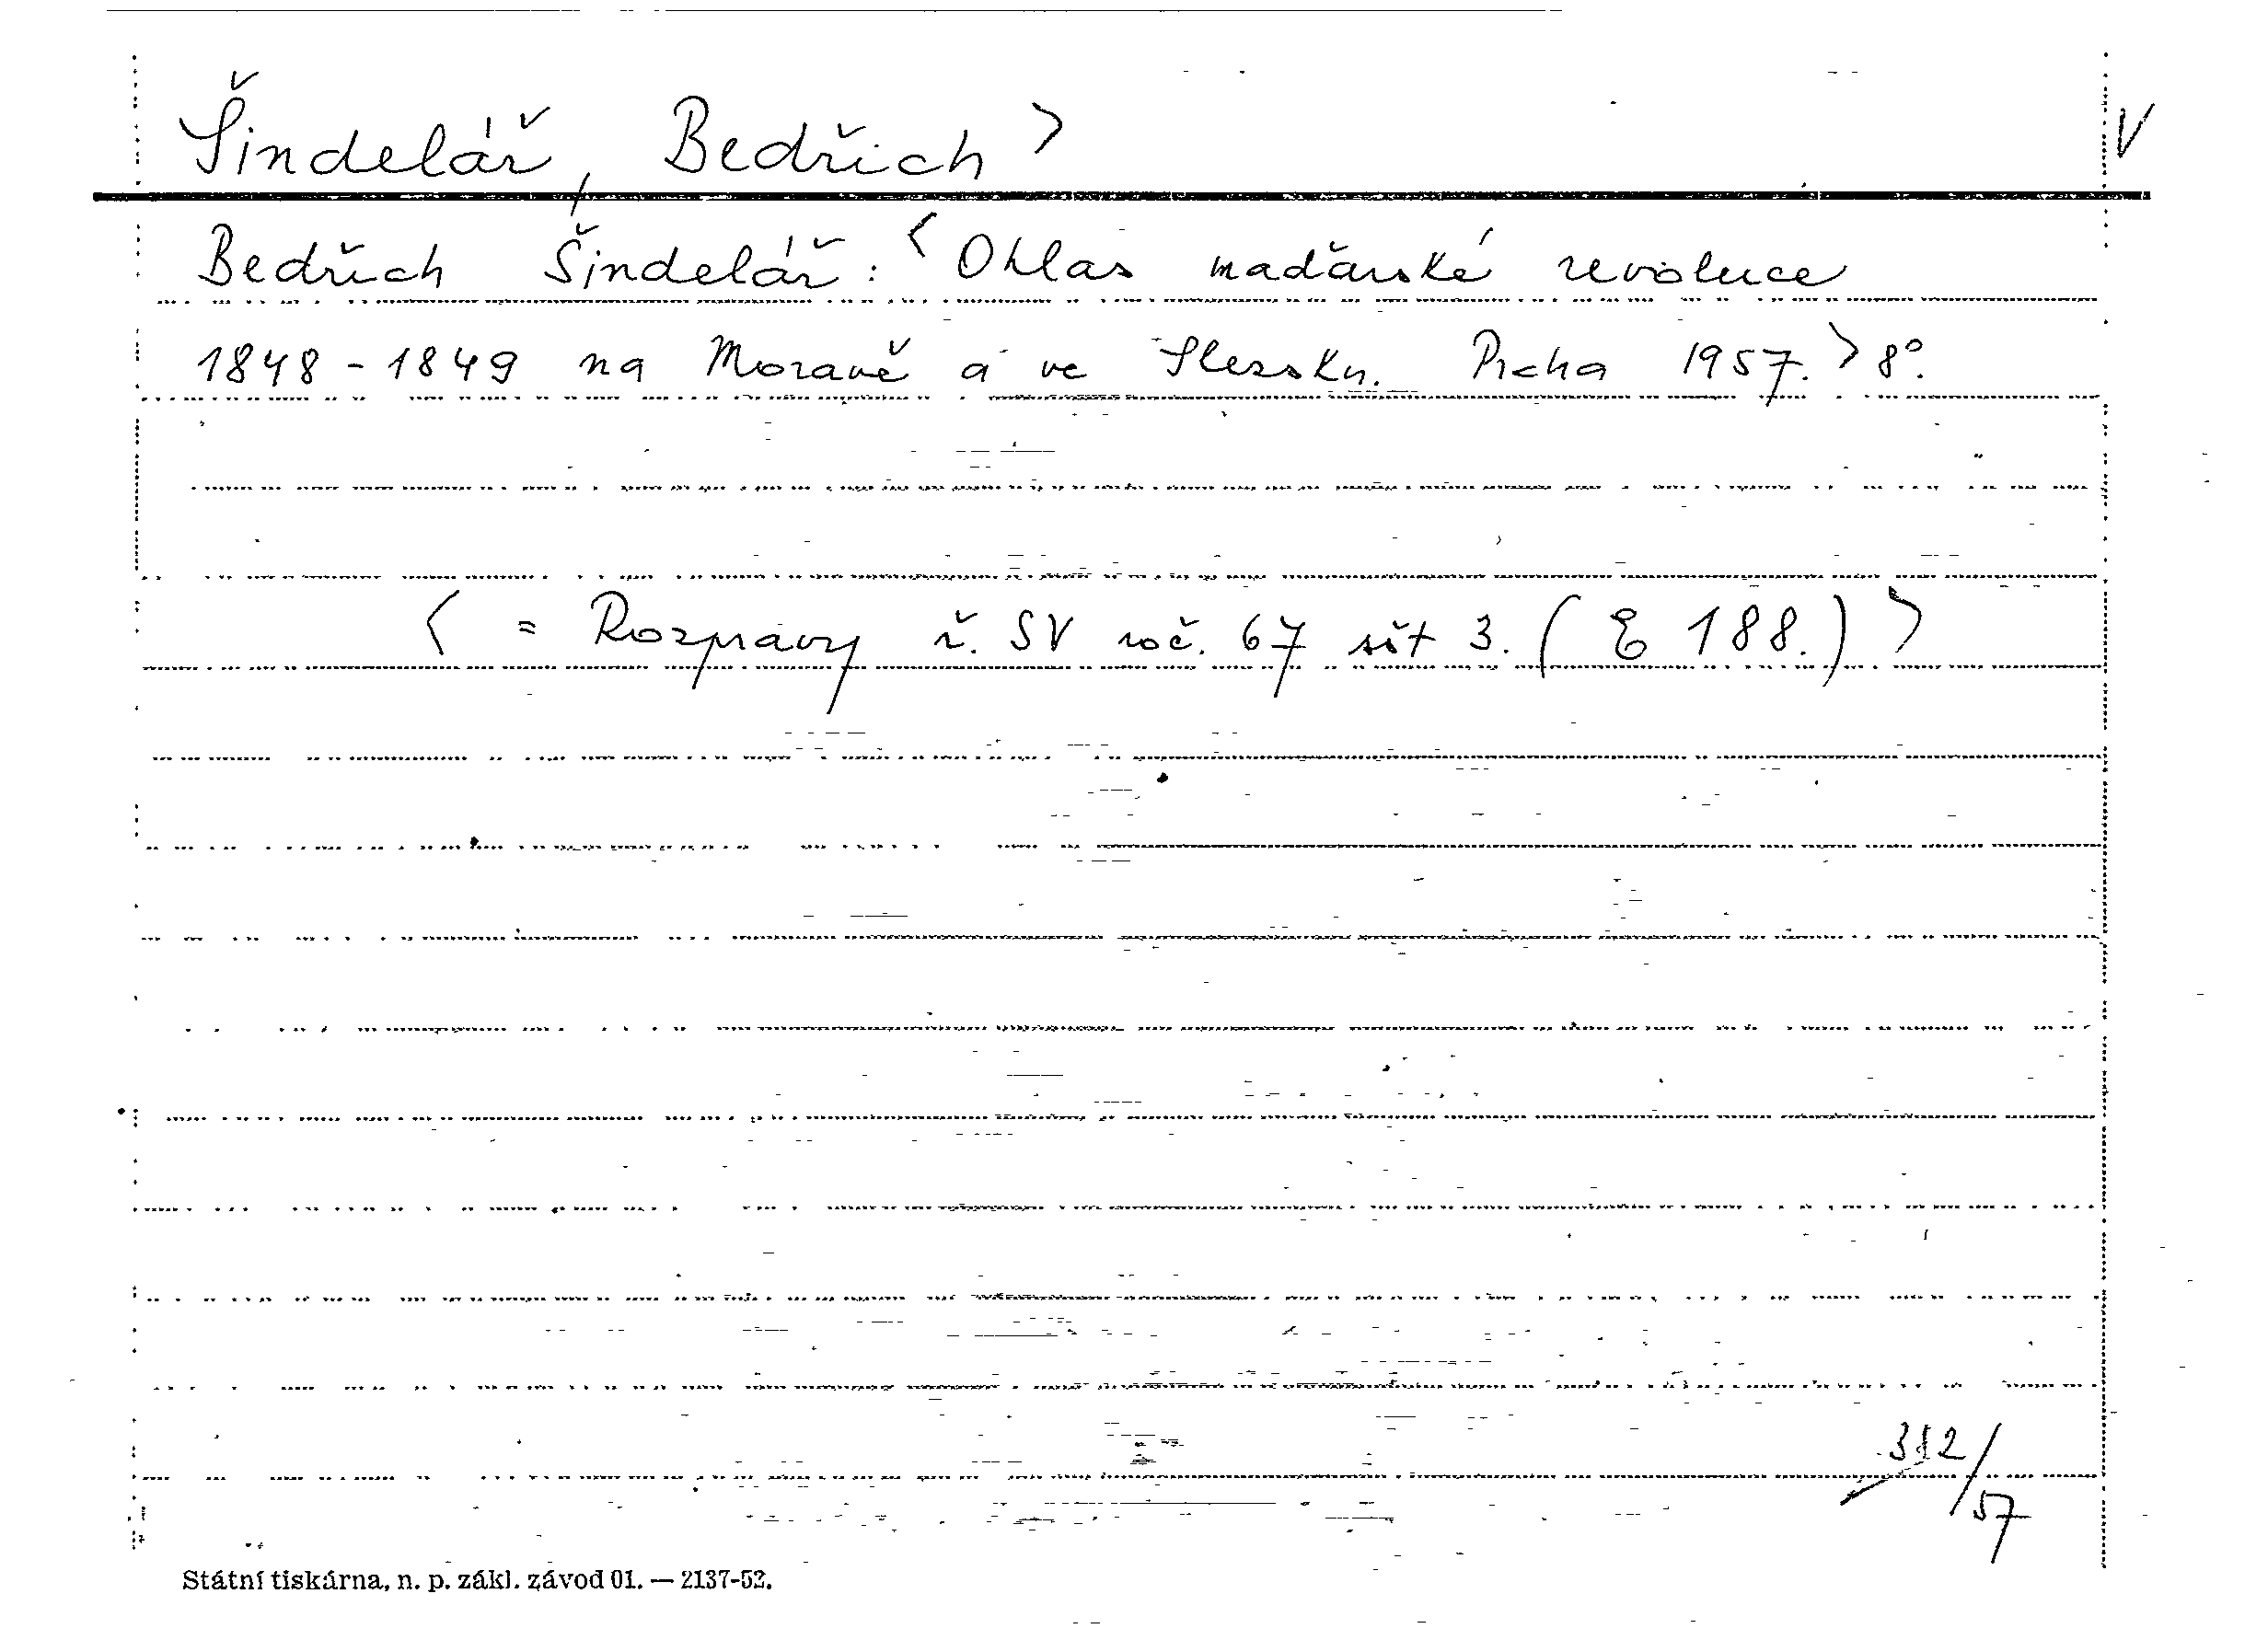 Šindelář, Bedřich > V
Bedřich Šindelář: < Ohlas maďarské revoluce
1848-1849 na Moravě a ve Slezsku. Praha 1957. > 8°.
< = Rozpravy ř. SV roč. 67 sšt 3. (E 188.) >
312/57
Státní tiskárna, n. p. zákl. závod 01. — 2137-53.